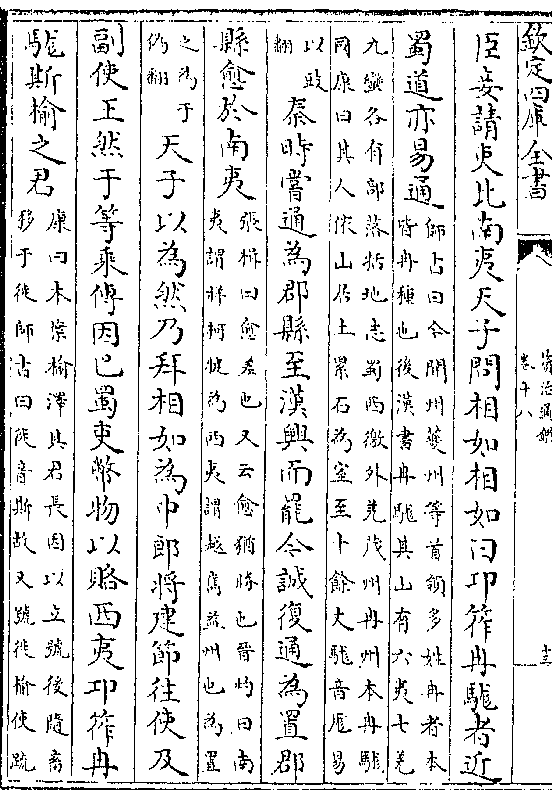 欽定四庫全書
資治通鑑
卷十八
十三
臣妾請吏比南夷天子問相如相如曰卭筰冉駹者近
蜀道亦易通
師古曰今開州夔州等首領多姓冉者本
皆冉種也後漢書冉駹其山有六夷七羌
九蠻各有部落括地志蜀西徼外羌茂州冉州本冉駹
國康曰其人依山居土累石為室至十餘丈駹音厖易
以豉
翻
秦時嘗通為郡縣至漢興而罷今誠復通為置郡
縣愈於南夷
張楫曰愈差也又云愈猶勝也晉灼曰南
夷謂牂柯犍為西夷謂越嶲益州也為置
之為于
偽翻
天子以為然乃拜相如為中郎將建節往使及
副使王然于等乘傳因巴蜀吏幣物以賂西夷卭筰冉
駹斯榆之君
康曰本葉榆澤其君長因以立號後隨畜
移于徙師古曰徙音斯故又號徙榆使疏